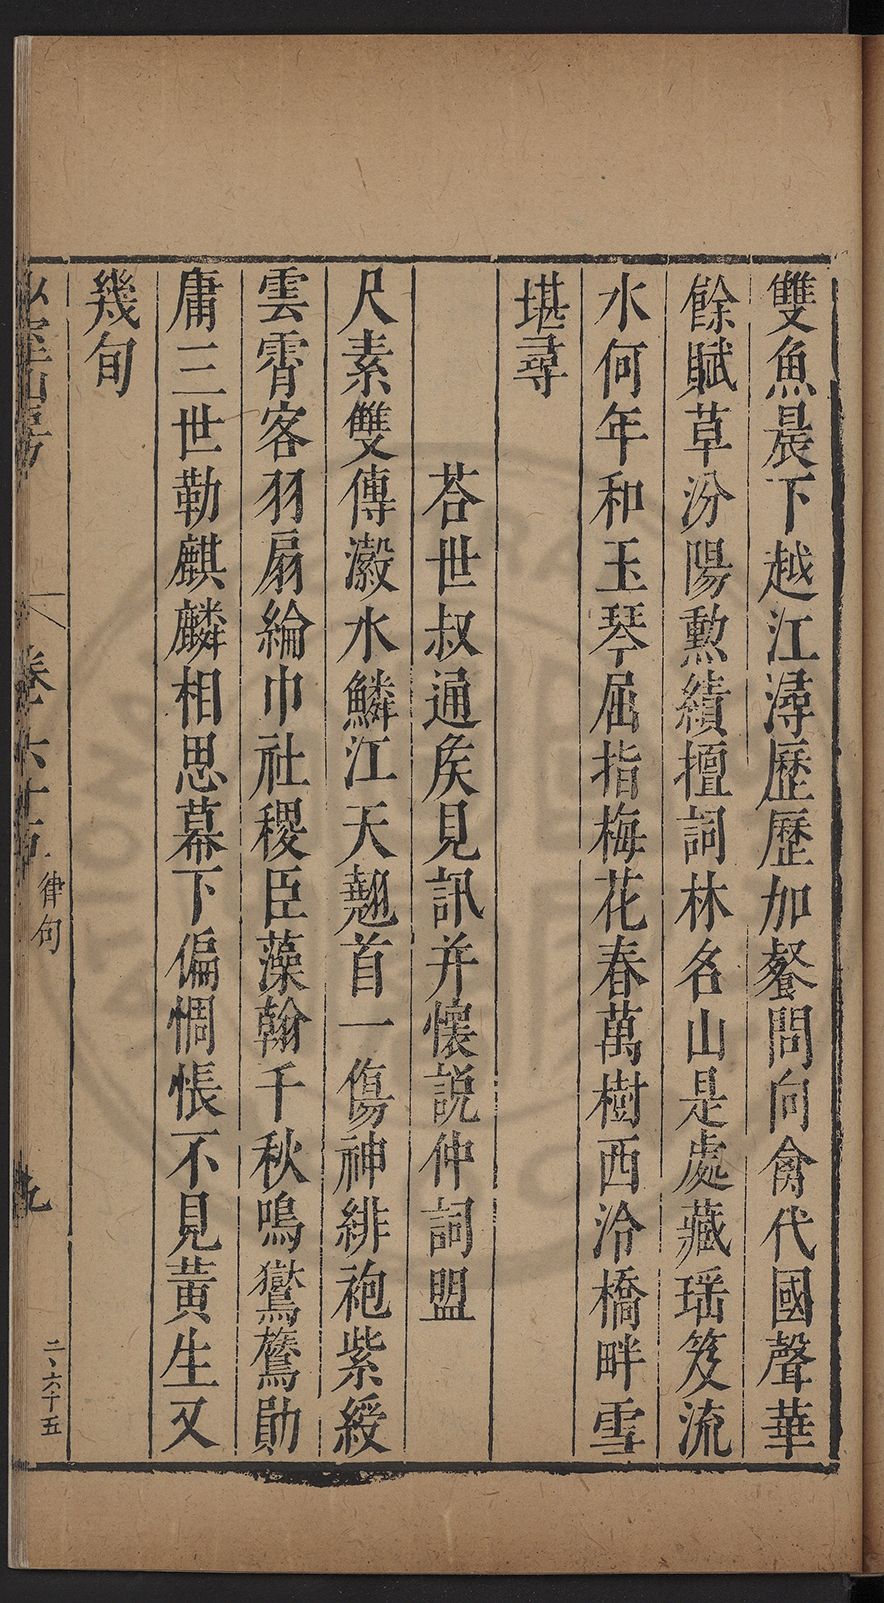 雙魚晨下越江潯歷歷加餐問向禽代國聲華
餘賦草汾陽勲績擅詞林名山是處藏瑶笈流
水何年和玉琴屈指梅花春萬樹西泠橋畔雪
堪尋
荅世叔通矦見訊并懷説仲詞盟
尺素雙傳瀫水鱗江天翹首一傷神緋袍紫綬
雲霄客羽扇綸巾社稷臣藻翰千秋鳴鸑鷟勛
庸三世勒麒麟相思幕下偏惆悵不見黃生又
幾旬
卷六十五
律句
九
二、六十五